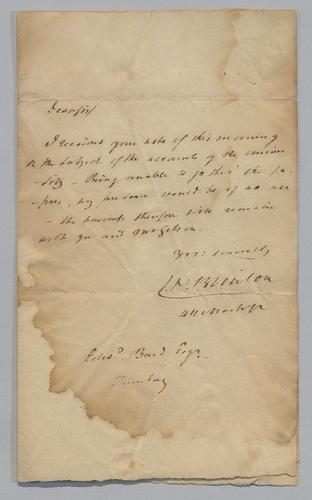 Dear sir
I received your note of this morning
on the subject of the accounts of the univer
-sity - Being unable to go thro' the pa-
pers, my presence would be of no use
- the business therefore will remain
with you and Mr
Yrs: sincerely
411 Market
Edwd. Burd Esqr.
Tuesday